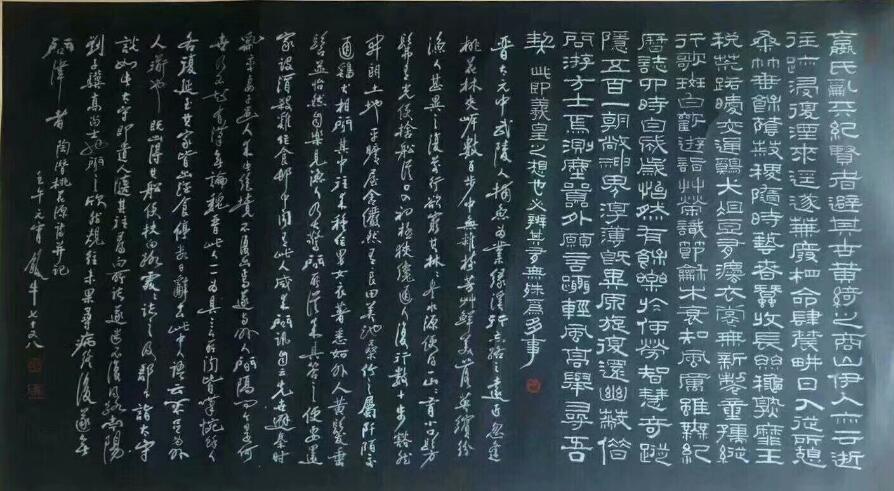 嬴氏亂天紀賢者避其世黃綺之商山伊人亦云逝
往迹浸復湮來逕遂蕪廢相命肆農耕日入從所憩
桑竹垂餘蔭菽稷隨時藝春蠶收長絲秋熟靡王
稅荒路曖交通鷄犬俎豆猶法衣裳無新製童孺縱
行歌斑白歡遊詣草榮識節和木衰知風厲雖無紀
曆誌四時自成歲怡然有餘樂於何勞智慧奇蹤
隱五百一朝敞神界淳薄既異源旋復還幽蔽借
問游方士焉測塵囂外願言躡輕風高舉尋吾
契 此即羲皇之想也必辨其有無殊爲多事
晋太元中武陵人捕魚為業緣溪行忘路之遠近忽逢
桃花林夾岸數百步中無雜樹芳草鮮美落英繽紛
漁人甚異之復前行欲窮其林林盡水源便得一山山有小口髣
髴若有光便捨船從口入初極狹纔通人復行數十步豁然
開朗土地平曠屋舍儼然有良田美池桑竹之屬阡陌交
通鷄犬相聞其中往來種作男女衣著悉如外人黃髮垂
髫並怡然自樂見漁人乃大驚問所從來具答之便要還
家設酒殺雞作食村中聞有此人咸來問訊自云先世避秦時
亂率妻子邑人來此絕境不復出焉遂與外人間隔問今是何
世乃不知有漢無論魏晉此人一一為具言所聞皆歎惋餘人
各復延至其家皆出酒食停數日辭去此中人語云不足為外
人道也既出得其船便扶向路處處誌之及郡下詣太守
說如此太守即遣人隨其往尋向所誌遂迷不復得路南陽
劉子驥高尚士也聞之欣然規往未果尋病終後遂無
問津者 陶潛桃花源詩并記
壬午元宵 年七十八